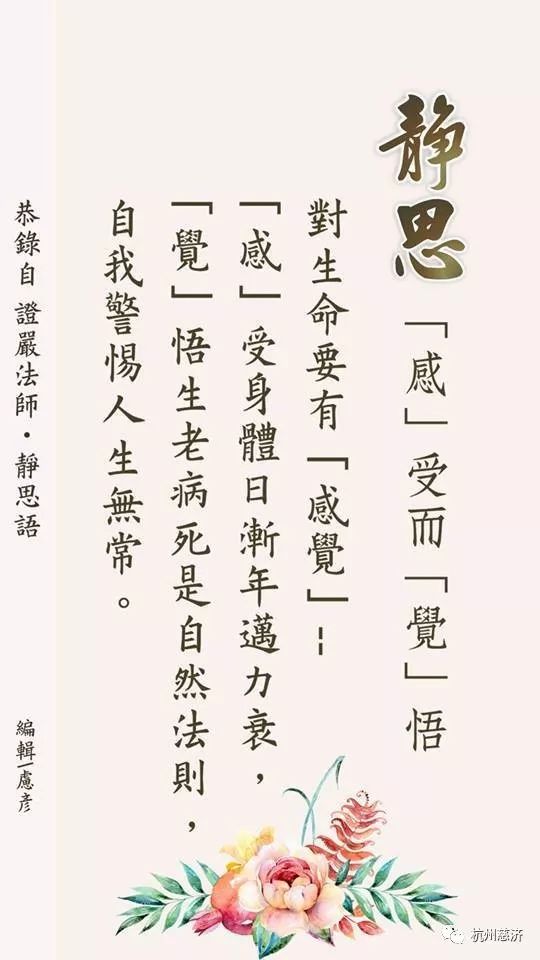 靜思
「感」受而「覺」悟
對生命要有「感覺」--
「感」受身體日漸年邁力衰，
「覺」悟生老病死是自然法則，
自我警惕人生無常。
恭錄自 證嚴法師·靜思語
編輯/慮彥
杭州慈济